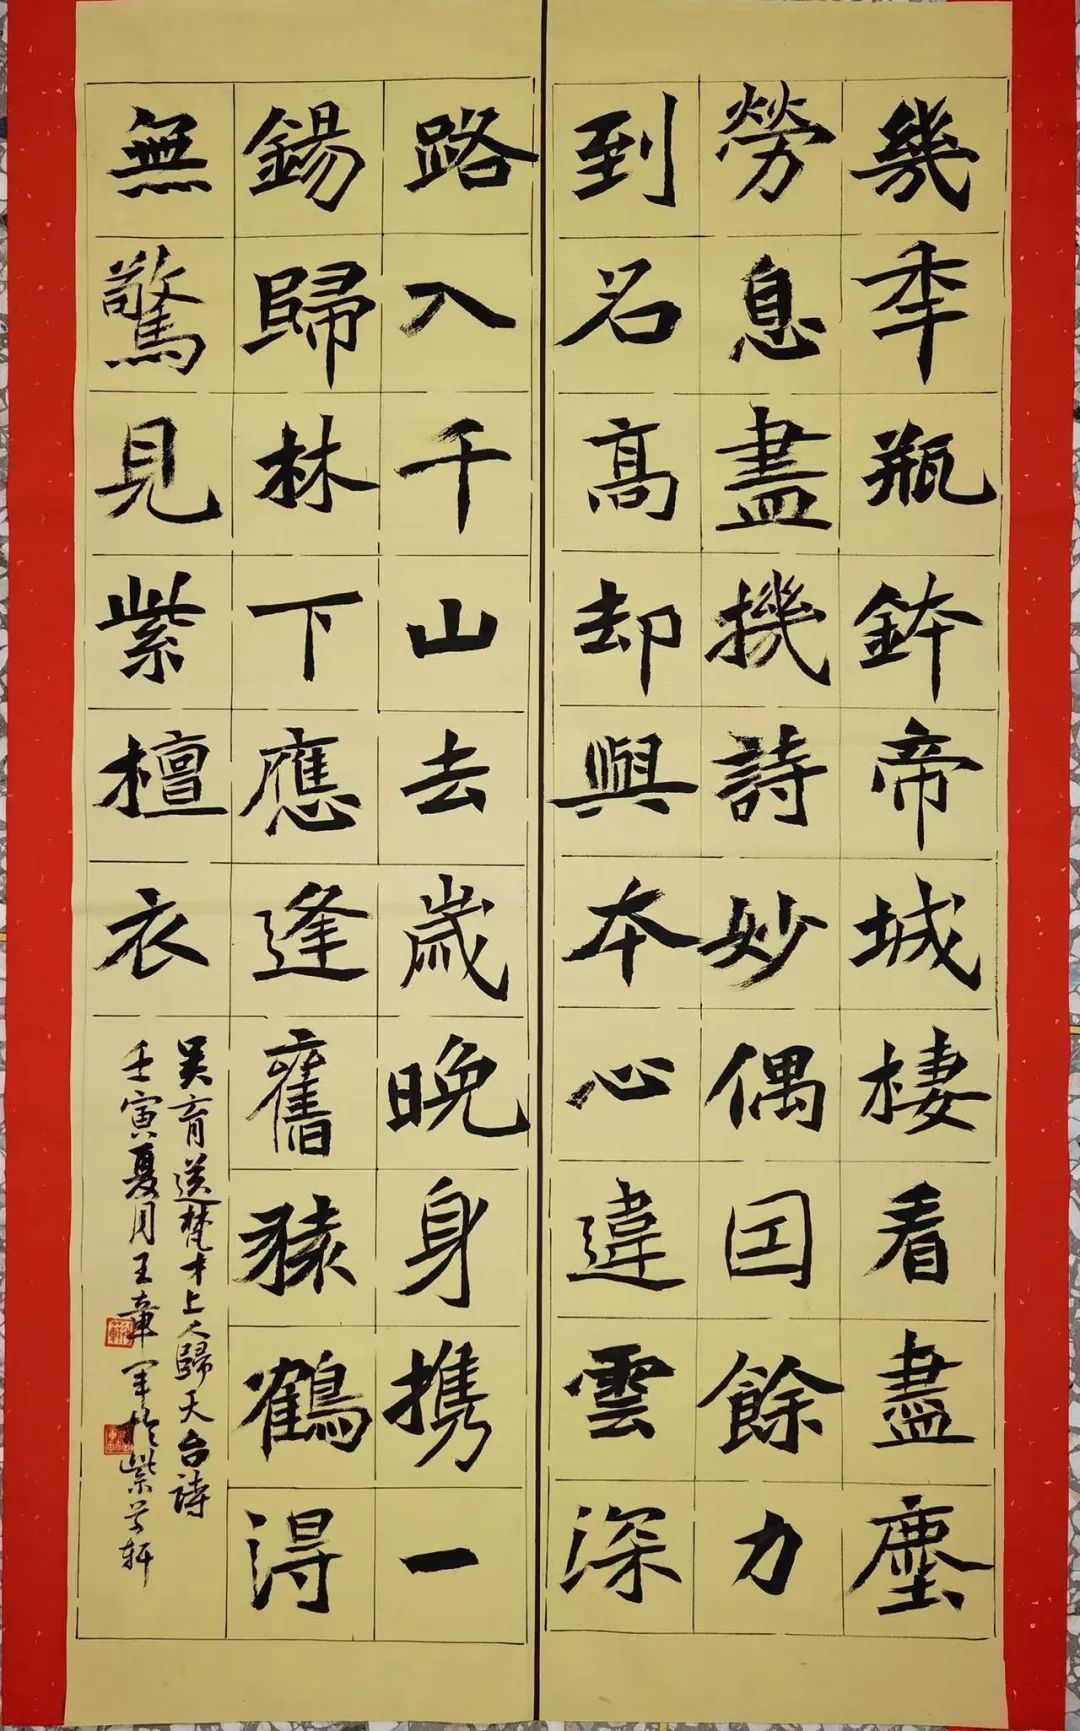 幾秊瓶鉢帝城棲看盡塵
勞息盡機詩妙偶囙餘力
到名髙却與本心違雲深
路入千山去歲晚身携一
錫歸林下應逢舊猿鶴得
無驚見紫檀衣
吴育送梵才上人歸天台詩
壬寅夏月王章军於紫芸軒